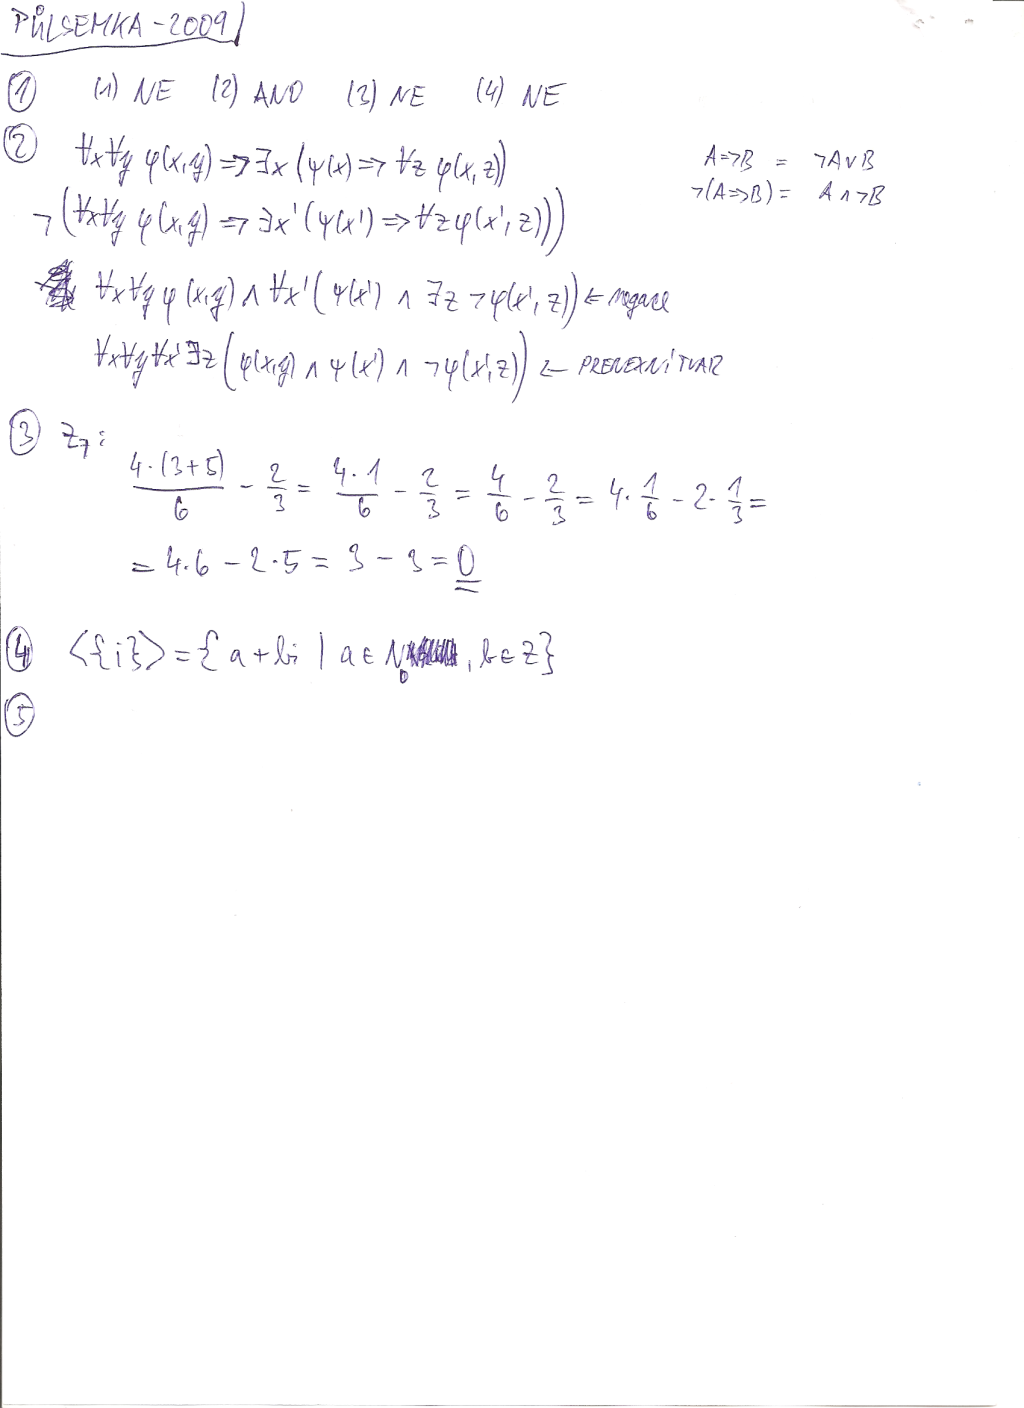 PŮLSEMKA - 2009
① (1) NE (2) ANO (3) NE (4) NE
② ∀x∀y φ(x,y) => ∃x (ψ(x) => ∀z φ(x,z))
A=>B = ¬A∨B
¬(A=>B) = A∧¬B
¬(∀x∀y φ(x,y) => ∃x'(ψ(x') => ∀z φ(x',z)))
∀x∀y φ(x,y) ∧ ∀x'(ψ(x') ∧ ∃z ¬φ(x',z)) ← negace
∀x∀y∀x'∃z (φ(x,y) ∧ ψ(x') ∧ ¬φ(x',z)) ← PRENEXNÍ TVAR
③ Z₇:
4·(3+5)/6 - 2/3 = 4·1/6 - 2/3 = 4/6 - 2/3 = 4·1/6 - 2·1/3 =
= 4·6 - 2·5 = 3 - 3 = 0
④ <{i}> = {a+bi | a∈N₀, b∈Z}
⑤